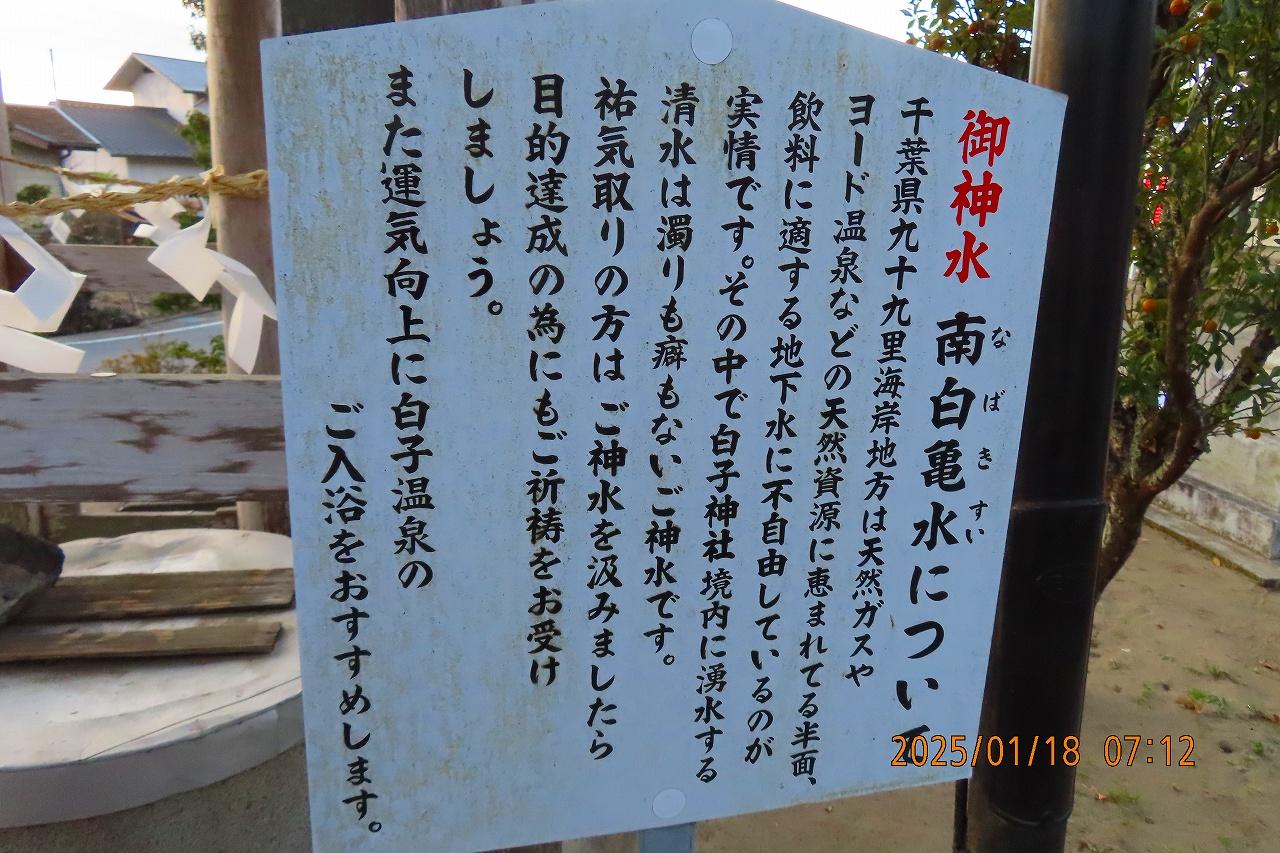 御神水 南白亀水について
なばきすい
千葉県九十九里海岸地方は天然ガスや
ヨード温泉などの天然資源に恵まれてる半面、
飲料に適する地下水に不自由しているのが
実情です。その中で白子神社境内に湧水する
清水は濁りも癖もないご神水です。
祐気取りの方はご神水を汲みましたら
目的達成の為にもご祈祷をお受け
しましょう。
また運気向上に白子温泉の
ご入浴をおすすめします。
2025/01/18 07:12